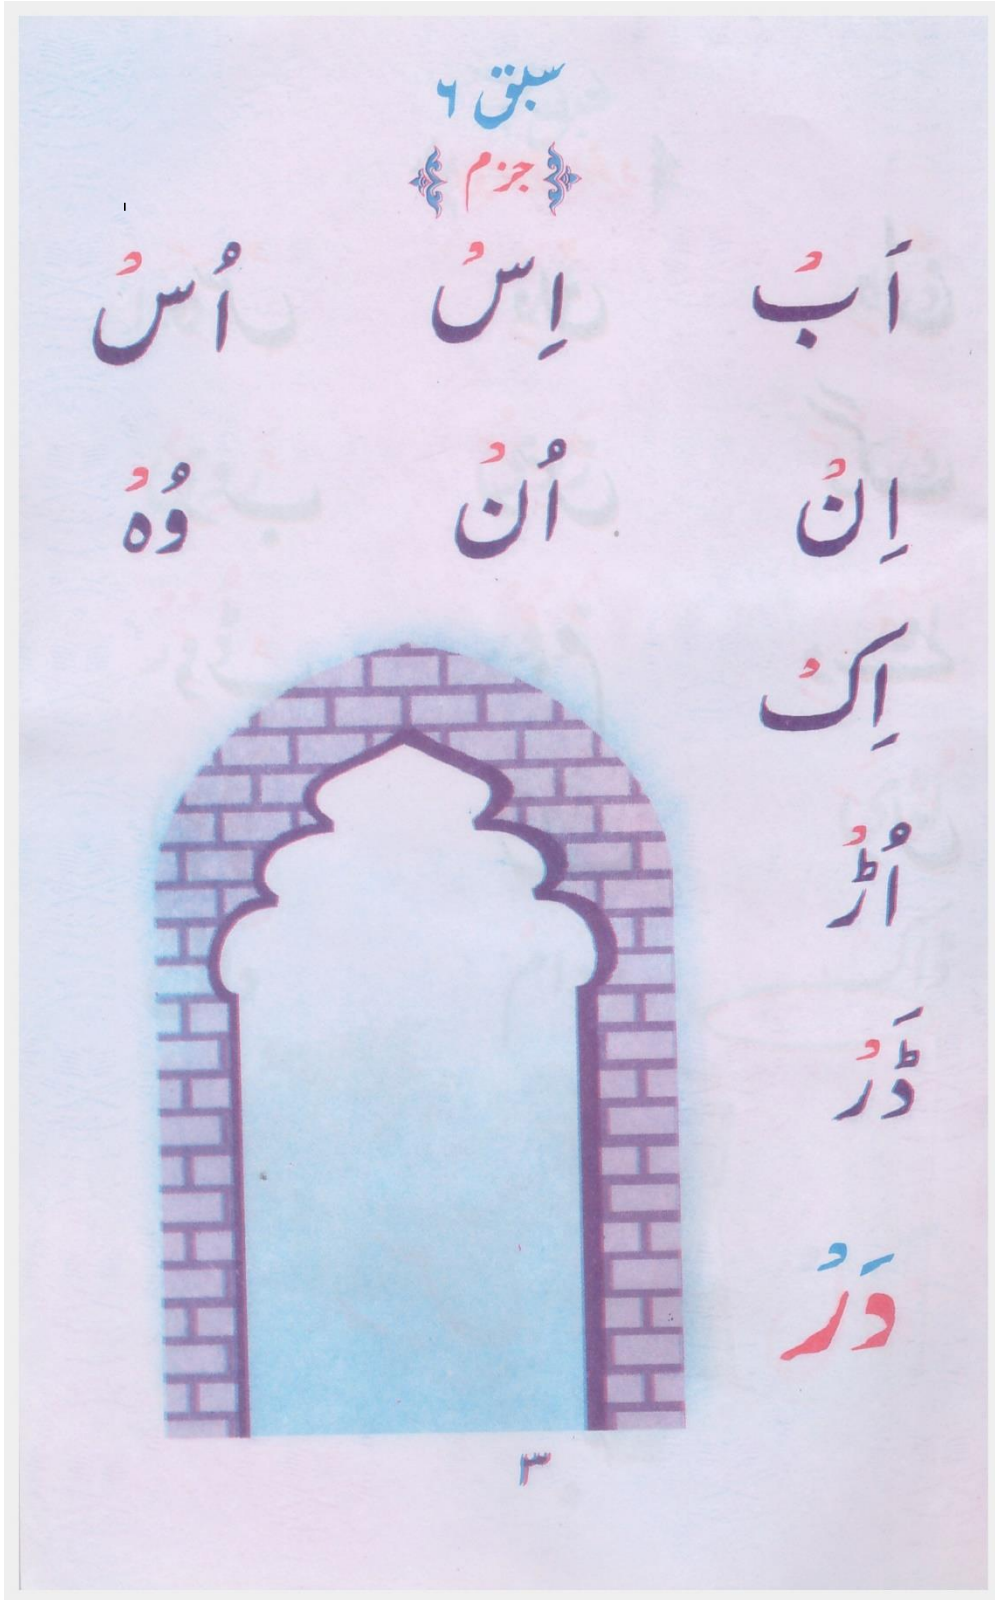 سبق ۶
جزم
اَبْ اِسْ اُسْ
اِنْ اُنْ وُہْ
اِکْ
اُڑْ
ڈَرْ
دَرْ
۳